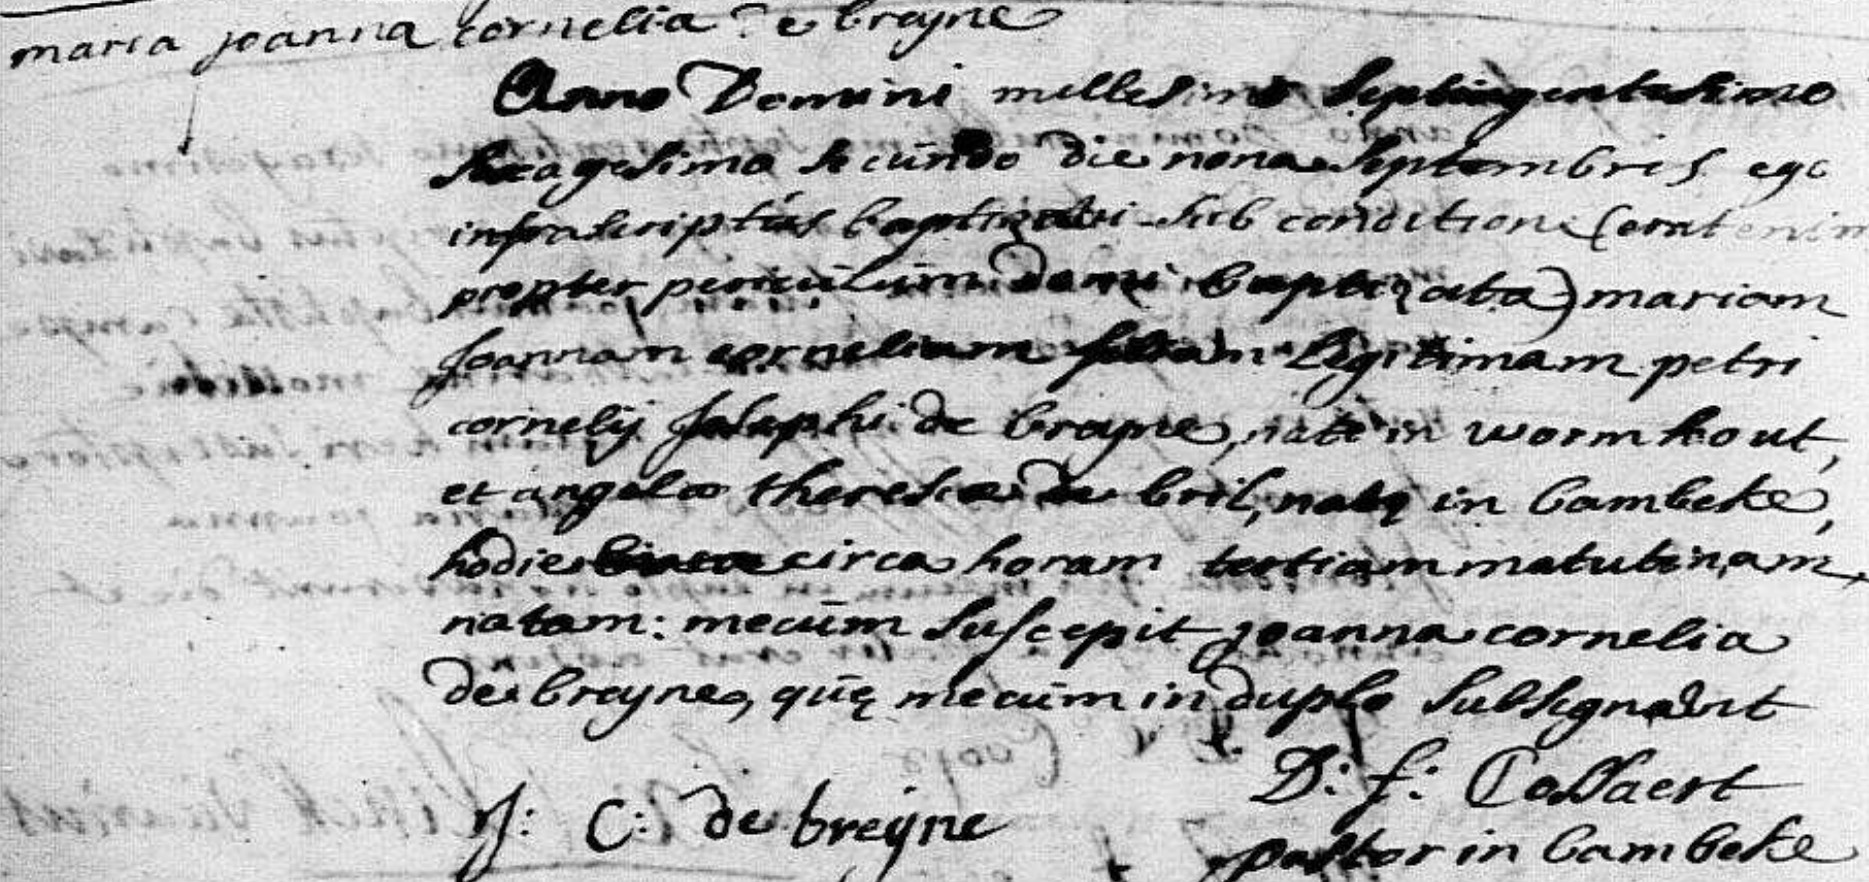 maria joanna cornelia de breyne
Anno Domini millesimo septingentesimo
sexagesimo secundo die nona septembris ego
infrascriptus baptizavi sub conditione (erat enim
propter periculum domi baptizata) mariam
Joannam corneliam filiam legitimam petri
cornelij Josephi de breyne, nati in wormhout,
et angelæ theresiæ de bril, natę in bambeke,
hodie circa horam tertiam matutinam
natam: mecum suscepit joanna cornelia
de breyne, quę mecum in duplo subsignavit
J: C: de breyne
D: f: Collaert
pastor in bambeke